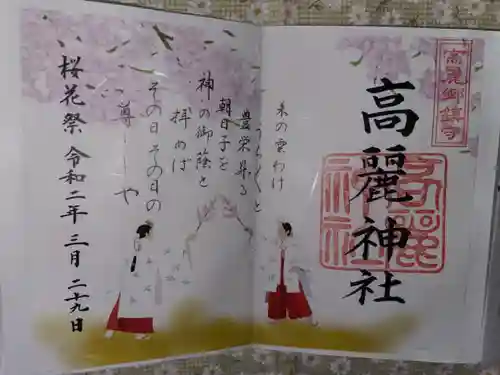 高麗郷鎮守
高麗神社
高麗神社
東の雲わけ
うらうらと
豊栄昇る
朝日子を
神の御蔭と
拝めば
その日その日の
尊しや
桜花祭 令和二年 三月 二十九日